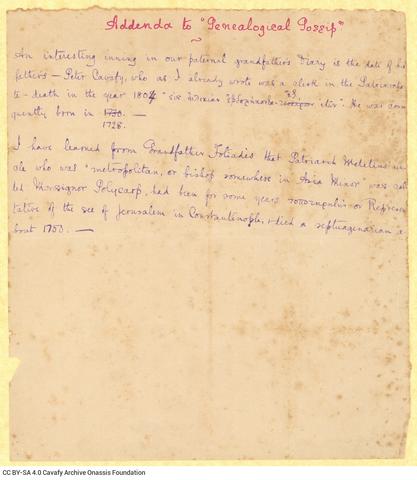 Addenda to "Genealogical Gossip"
~
An interesting inning in our paternal grandfather's Diary is the date of his
father's — Peter Cavafy, who as I already wrote was a clerk in the Patriarcha-
te – death in the year 1804 "εις ηλικίαν ετών". He was conse-
quently born in 1730. —
1728.
I have learned from Grandfather Fotiades that Patriarch Meletius' un-
cle who was metropolitan, or bishop somewhere in Asia Minor was cal-
led Monsignor Polycarp, had been for some years or Represen-
tative of the see of Jerusalem in Constantinople, & died a septuagenarian a-
bout 1700. —
CC BY-SA 4.0 Cavafy Archive Onassis Foundation